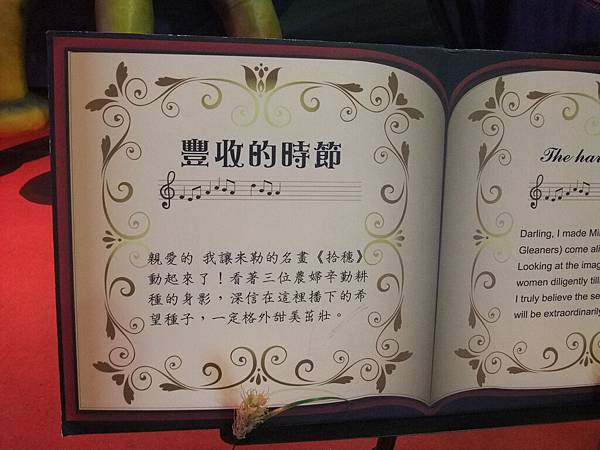 豐收的時節
親愛的 我讓米勒的名畫《拾穗》
動起來了！看著三位農婦辛勤耕
種的身影，深信在這裡播下的希
望種子，一定格外甜美茁壯。
The har
Darling, I made Mi
Gleaners) come ali
Looking at the imag
women diligently till
I truly believe the se
will be extraordinarily